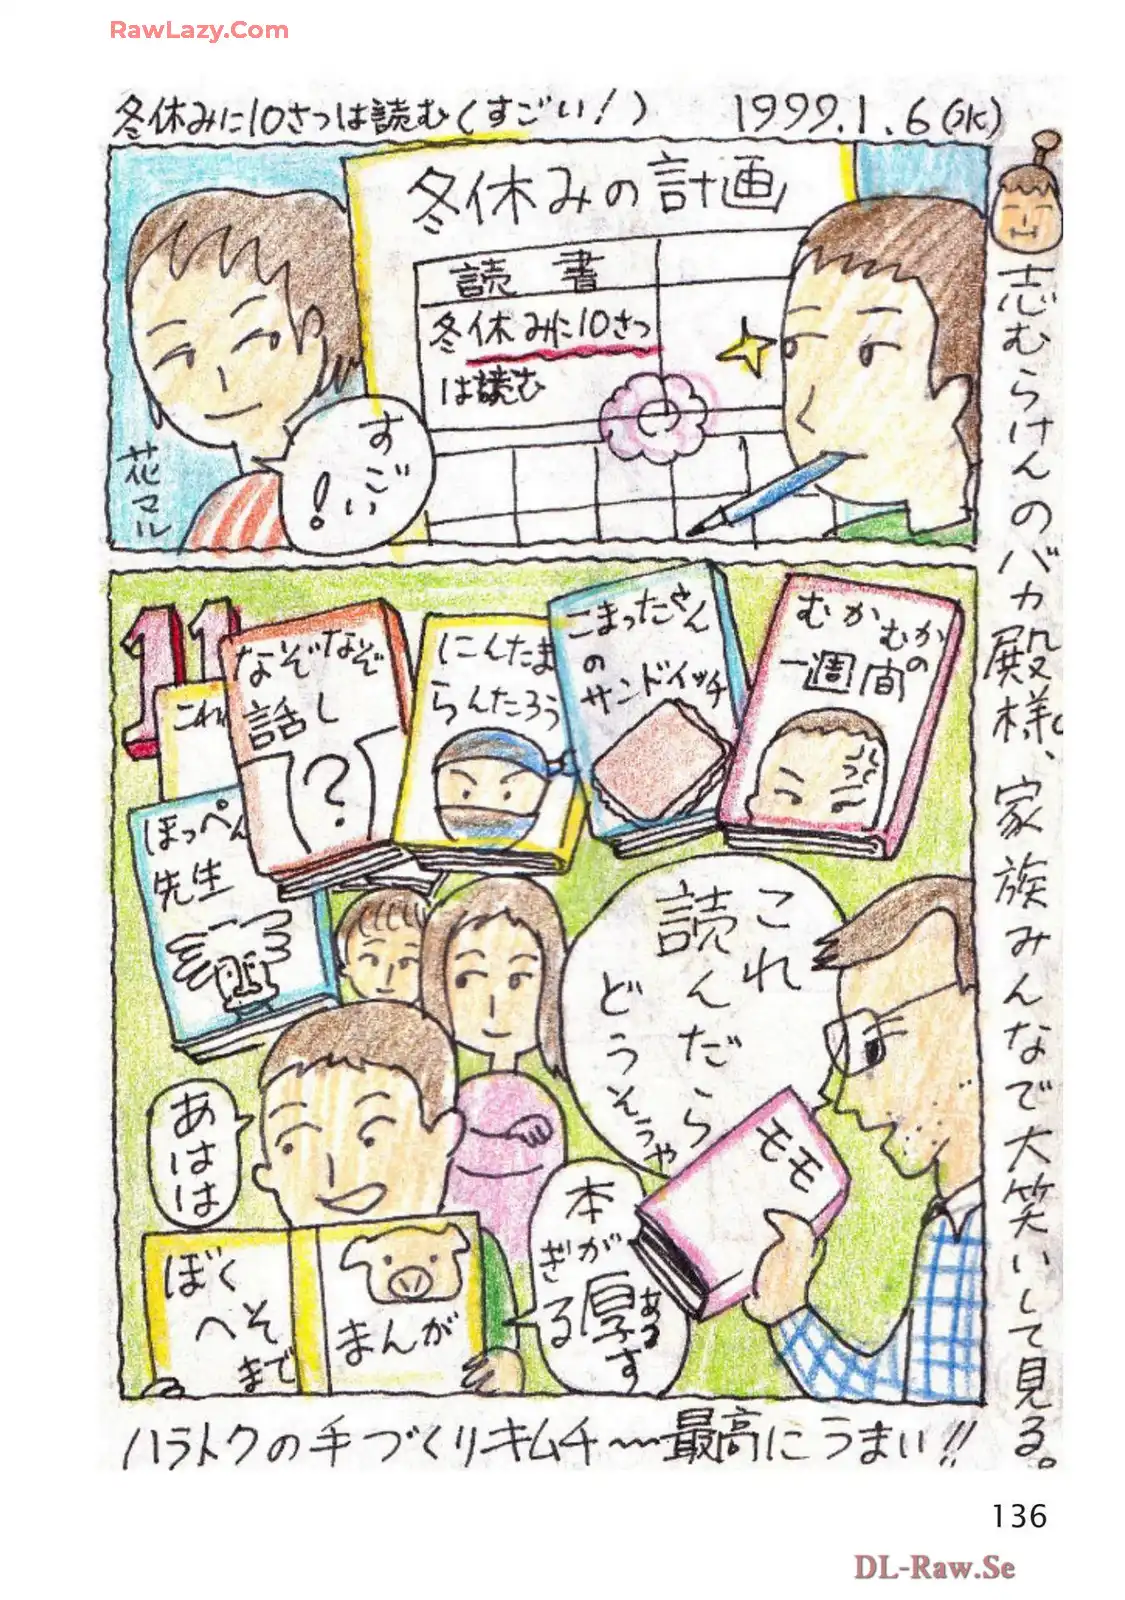 RawLazy.Com
冬休みに10さつは読む(すごい!) 1999.1.6(水)
志むらけんのバカ殿様、家族みんなで大笑いして見る。
冬休みの計画
読書
冬休みに10さつ
は読む
すごい!
花マル
11
むかむかの
一週間
こまったさん
の
サンドイッチ
にんたま
らんたろう
なぞなぞ
話し
?
これ
ほっぺん
先生
これ
読んだら
どうぞ
モモ
本が
厚す
ぎる
あつ
あはは
ぼく
へそ
まで
まんが
ハラトクの手づくりキムチ〜最高にうまい!!
136
DL-Raw.Se